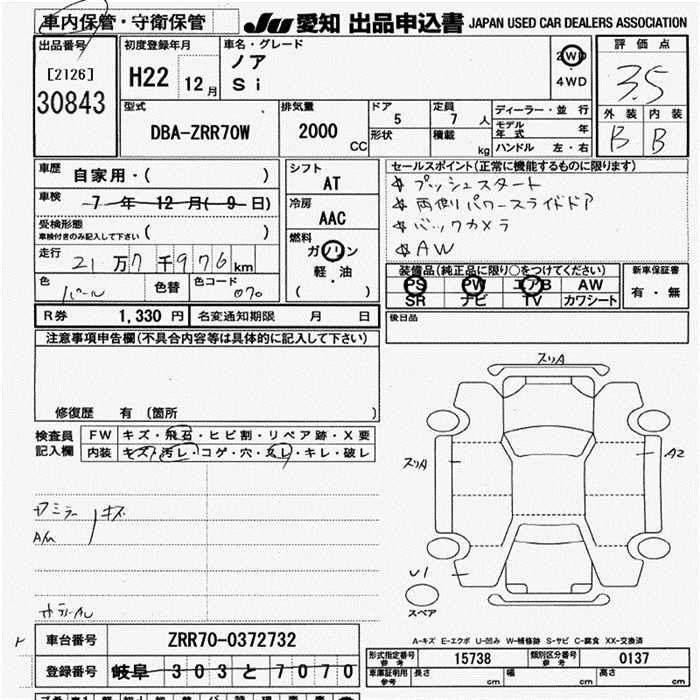 車内保管・守衛保管
JU 愛知 出品申込書 JAPAN USED CAR DEALERS ASSOCIATION
出品番号
[2126]
30843
初度登録年月
H22 12月
車名・グレード
ノア
Si
2WD
4WD
評価点
3.5
外装 内装
B B
型式
DBA-ZRR70W
排気量
2000 CC
ドア
5
形状
定員
7 人
積載
kg
ディーラー・並行
モデル年式 年
ハンドル 左・右
車歴
自家用・( )
車検
7 年 12 月( 9 日)
受検形態
車検付きのみ記入して下さい ( )
走行
21万7千976km
色
パール
色替
色コード
070
シフト
AT
冷房
AAC
燃料
ガソリン
軽・油
( )
セールスポイント(正常に機能するものに限ります)
☆ プッシュスタート
☆ 両側パワースライドドア
☆ バックカメラ
☆ AW
装備品(純正品に限り○をつけてください)
PS PW エアB AW
SR ナビ TV カワシート
新車保証書
有・無
R券 1,330 円
名変通知期限 月 日
後日品
注意事項申告欄(不具合内容等は具体的に記入して下さい)
修復歴 有 (箇所 )
検査員記入欄
FW キズ・飛石・ヒビ割・リペア跡・X要
内装 キズ・汚レ・コゲ・穴・スレ・キレ・破レ
スリA
スリA
A2
U1
スペア
ミラー キズ
A/W
車台番号
ZRR70-0372732
登録番号
岐阜 303 と 7070
A-キズ E-エクボ U-凹み W-補修跡 S-サビ C-腐食 XX-交換済
形式指定番号 参考
15738
類別区分番号 参考
0137
車庫証明用 参考
長さ cm
幅 cm
高さ cm